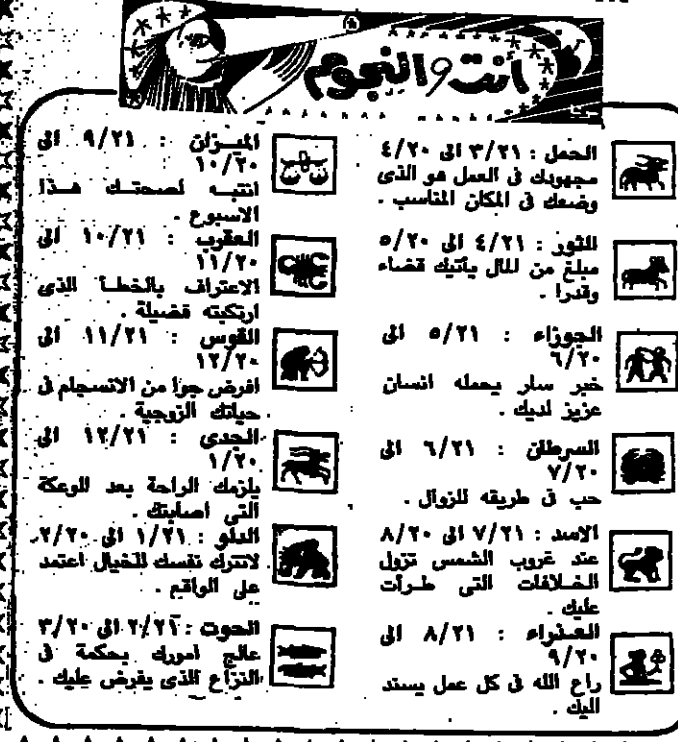 أنت والنجوم
الحمل : ٣/٢١ الى ٤/٢٠
مجهودك فى العمل هو الذى
وضعك فى المكان المناسب .
الثور : ٤/٢١ الى ٥/٢٠
مبلغ من المال يأتيك قضاء
وقدرا .
الجوزاء : ٥/٢١ الى
٦/٢٠
خبر سار يحمله انسان
عزيز لديك .
السرطان : ٦/٢١ الى
٧/٢٠
حب فى طريقه للزوال .
الاسد : ٧/٢١ الى ٨/٢٠
عند غروب الشمس تزول
الخلافات التى طرأت
عليك .
العذراء : ٨/٢١ الى
٩/٢٠
راع الله فى كل عمل يسند
اليك .
الميزان : ٩/٢١ الى
١٠/٢٠
انتبه لصحتك هذا
الاسبوع .
العقرب : ١٠/٢١ الى
١١/٢٠
الاعتراف بالخطأ الذى
ارتكبته فضيلة .
القوس : ١١/٢١ الى
١٢/٢٠
افرض جوا من الانسجام فى
حياتك الزوجية .
الجدى : ١٢/٢١ الى
١/٢٠
يلزمك الراحة بعد الوعكة
التى اصابتك .
الدلو : ١/٢١ الى ٢/٢٠
لاتترك نفسك للخيال اعتمد
على الواقع .
الحوت : ٢/٢١ الى ٣/٢٠
عالج امورك بحكمة فى
النزاع الذى يفرض عليك .